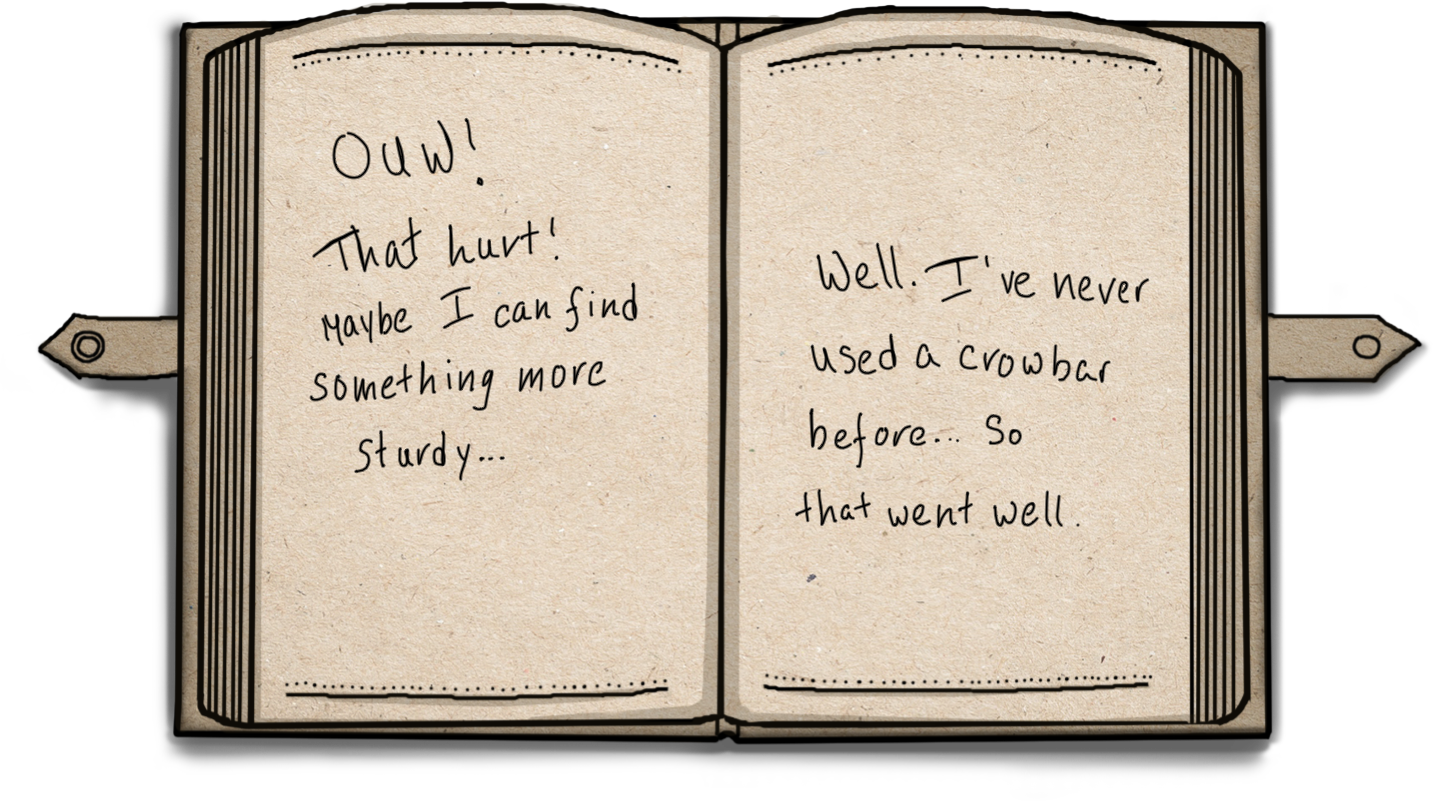 OUW!
That hurt!
Maybe I can find
something more
sturdy...
Well. I've never
used a crowbar
before... So
that went well.